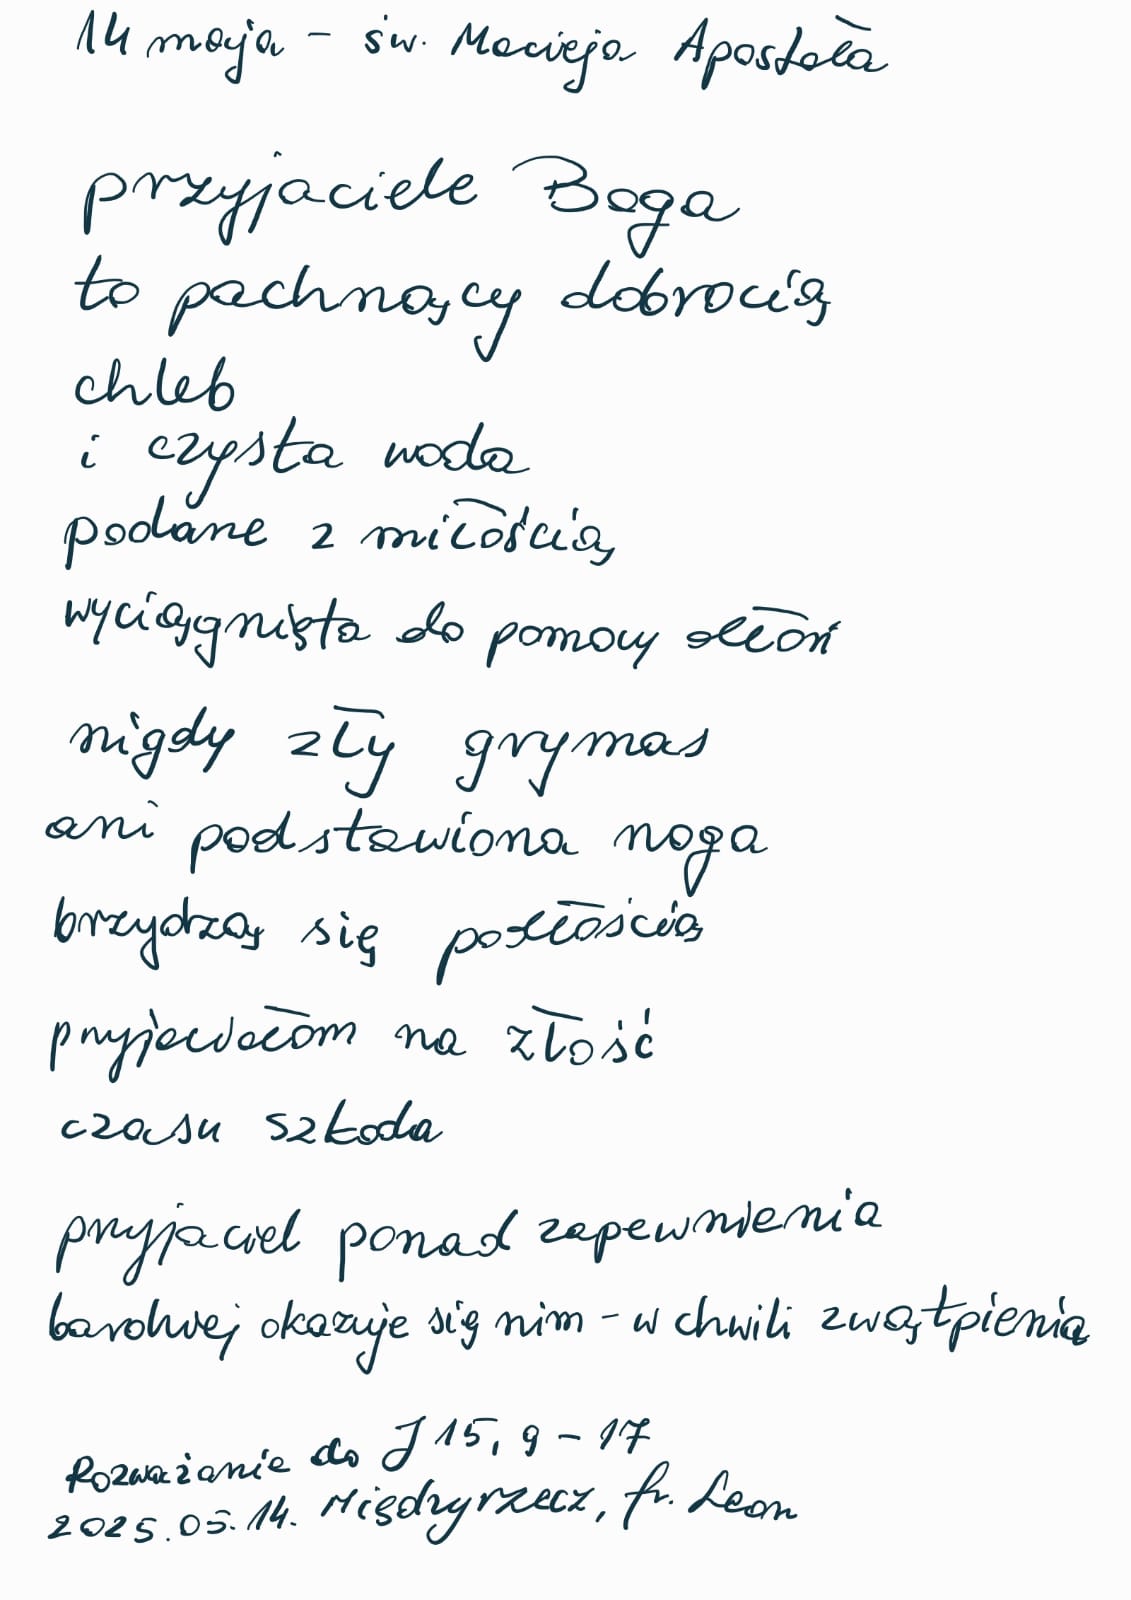 14 maja - św. Macieja Apostoła
przyjaciele Boga
to pachnący dobrocią
chleb
i czysta woda
podane z miłością
wyciągnięta do pomocy dłoń
nigdy zły grymas
ani podstawiona noga
brzydzą się podłością
przyjaciołom na złość
czasu szkoda
przyjaciel ponad zapewnienia
bardziej okazuje się nim - w chwili zwątpienia
Rozważanie do J 15, 9-17
2025.05.14. Międzyrzecz, fr. Leon